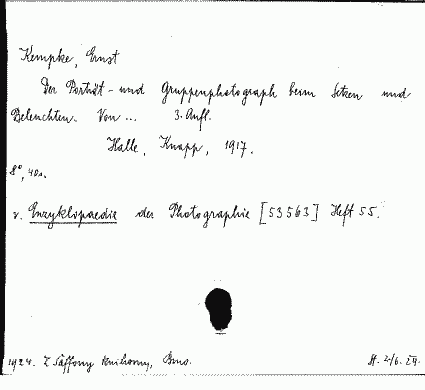 Kempke, Ernst
Der Porträt- und Gruppenphotograph beim Setzen und
Beleuchten. Von ... 3. Aufl.
Halle, Knapp, 1917.
8°, 40 s.
v. Enzyklopaedie der Photographie [53563] Heft 55.
1924. Z Säffovy knihovny, Brno.